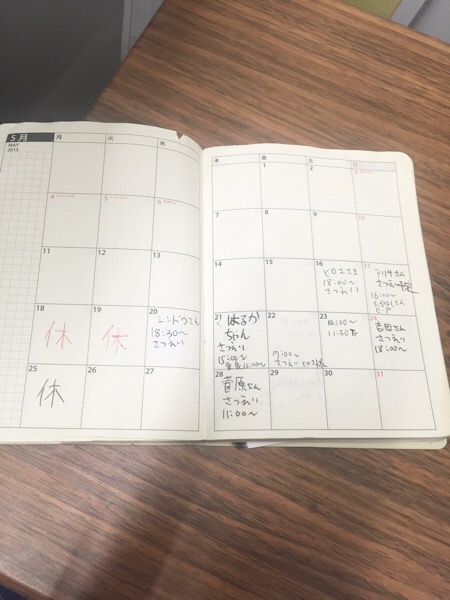 5月
MAY
2015
月 火 水 木 金 土 日
1 2 3
4 5 6 7 8 9 10
11 12 13 14 15 16 17
ヒロマさま
18:00〜
さつえい
アリサさん
さつえい
16:00〜
18 19 20 21 22 23 24
休 休
18:30〜
さつえい
はるか
ちゃん
さつえい
15:00〜
17:00〜
さつえい
10:00〜
11:30
吉田さん
さつえい
18:00〜
25 26 27 28 29 30 31
休
菅原さん
さつえい
11:00〜